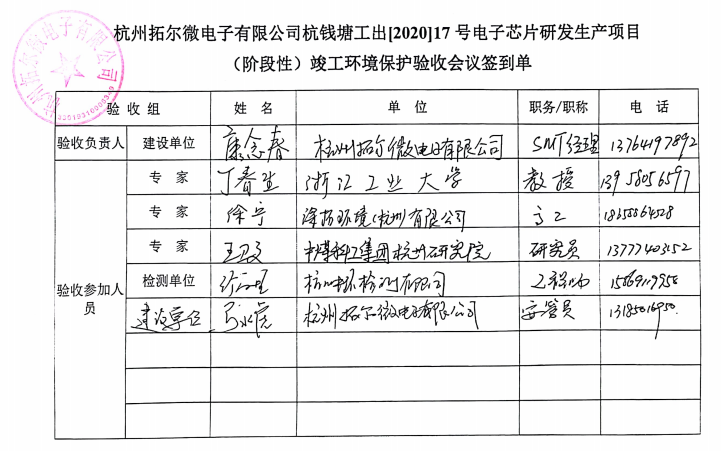 杭州拓尔微电子有限公司杭钱塘工出[2020]17号电子芯片研发生产项目
（阶段性）竣工环境保护验收会议签到单
验收组 姓名 单位 职务/职称 电话
验收负责人 建设单位 康念春 杭州拓尔微电子有限公司 SMT经理 13764197892
专家 丁春生 浙江工业大学 教授 13958056597
专家 徐宁 环境(杭州)有限公司 高工
专家 王卫文 中煤科工集团杭州研究院 研究员 13777403152
验收参加人员 检测单位 杭州 检测有限公司 工程师
建设单位 杭州拓尔微电子有限公司 安管员 13185016950